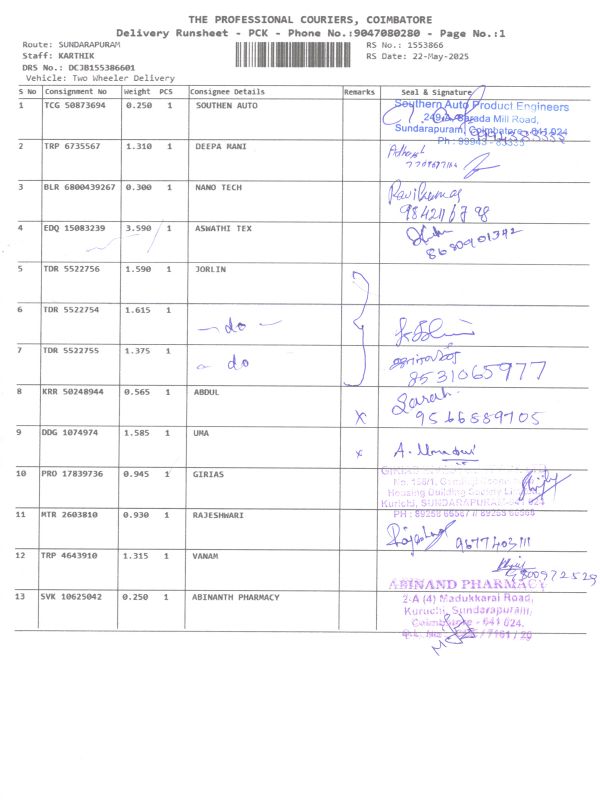 THE PROFESSIONAL COURIERS, COIMBATORE
Delivery Runsheet - PCK - Phone No.:9047080280 - Page No.:1
Route: SUNDARAPURAM RS No.: 1553866
Staff: KARTHIK RS Date: 22-May-2025
DRS No.: DCJB155386601
Vehicle: Two Wheeler Delivery
S No Consignment No Weight PCS Consignee Details Remarks Seal & Signature
1 TCG 50873694 0.250 1 SOUTHEN AUTO
Southern Auto Product Engineers
Sarada Mill Road,
Sundarapuram, Coimbatore - 641 024
2 TRP 6735567 1.310 1 DEEPA MANI
3 BLR 6800439267 0.300 1 NANO TECH
Ravikumar
4 EDQ 15083239 3.590 1 ASWATHI TEX
8680901342
5 TDR 5522756 1.590 1 JORLIN
6 TDR 5522754 1.615 1
— do —
7 TDR 5522755 1.375 1
do
8531065977
8 KRR 50248944 0.565 1 ABDUL x
Sarah
9566589705
9 DDG 1074974 1.585 1 UMA x
A. Umadevi
10 PRO 17839736 0.945 1 GIRIAS
GIRIAS
Housing Building Society
Kurichi, SUNDARAPURAM
11 MTR 2603810 0.930 1 RAJESHWARI
9677403111
12 TRP 4643910 1.315 1 VANAM
13 SVK 10625042 0.250 1 ABINANTH PHARMACY
ABINAND PHARMACY
2-A (4) Madukkarai Road,
Kuruchi, Sundarapuram,
Coimbatore - 641 024.